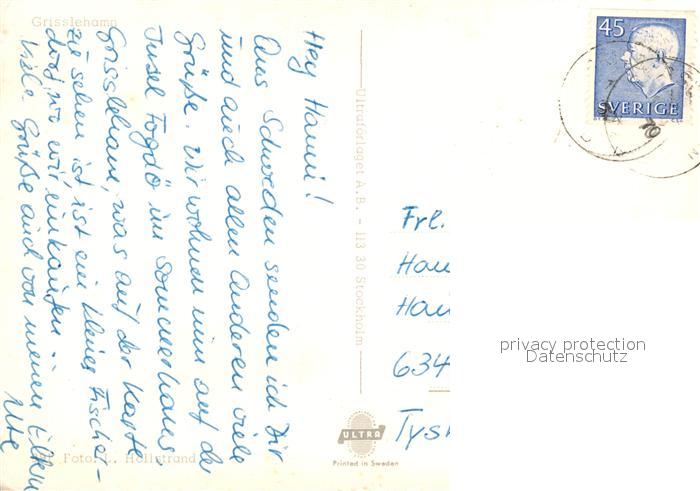 Grisslehamn
Hey Hanni!
Aus Schweden senden ich Dir
und auch allen Anderen viele
Grüße. Wir wohnen nun auf der
Insel Fogdö im Sommerhaus.
Grisslehamn, was auf der Karte
zu sehen ist, ist ein kleines Fischer-
dorf, wo wir einkaufen.
Viele Grüße auch von meinen Eltern
Ute
Foto: L. Hallstrand
Ultraförlaget A.B. - 113 30 Stockholm
ULTRA
Printed in Sweden
45
SVERIGE
70
Frl.
Han
Hau
634
Tys
privacy protection
Datenschutz